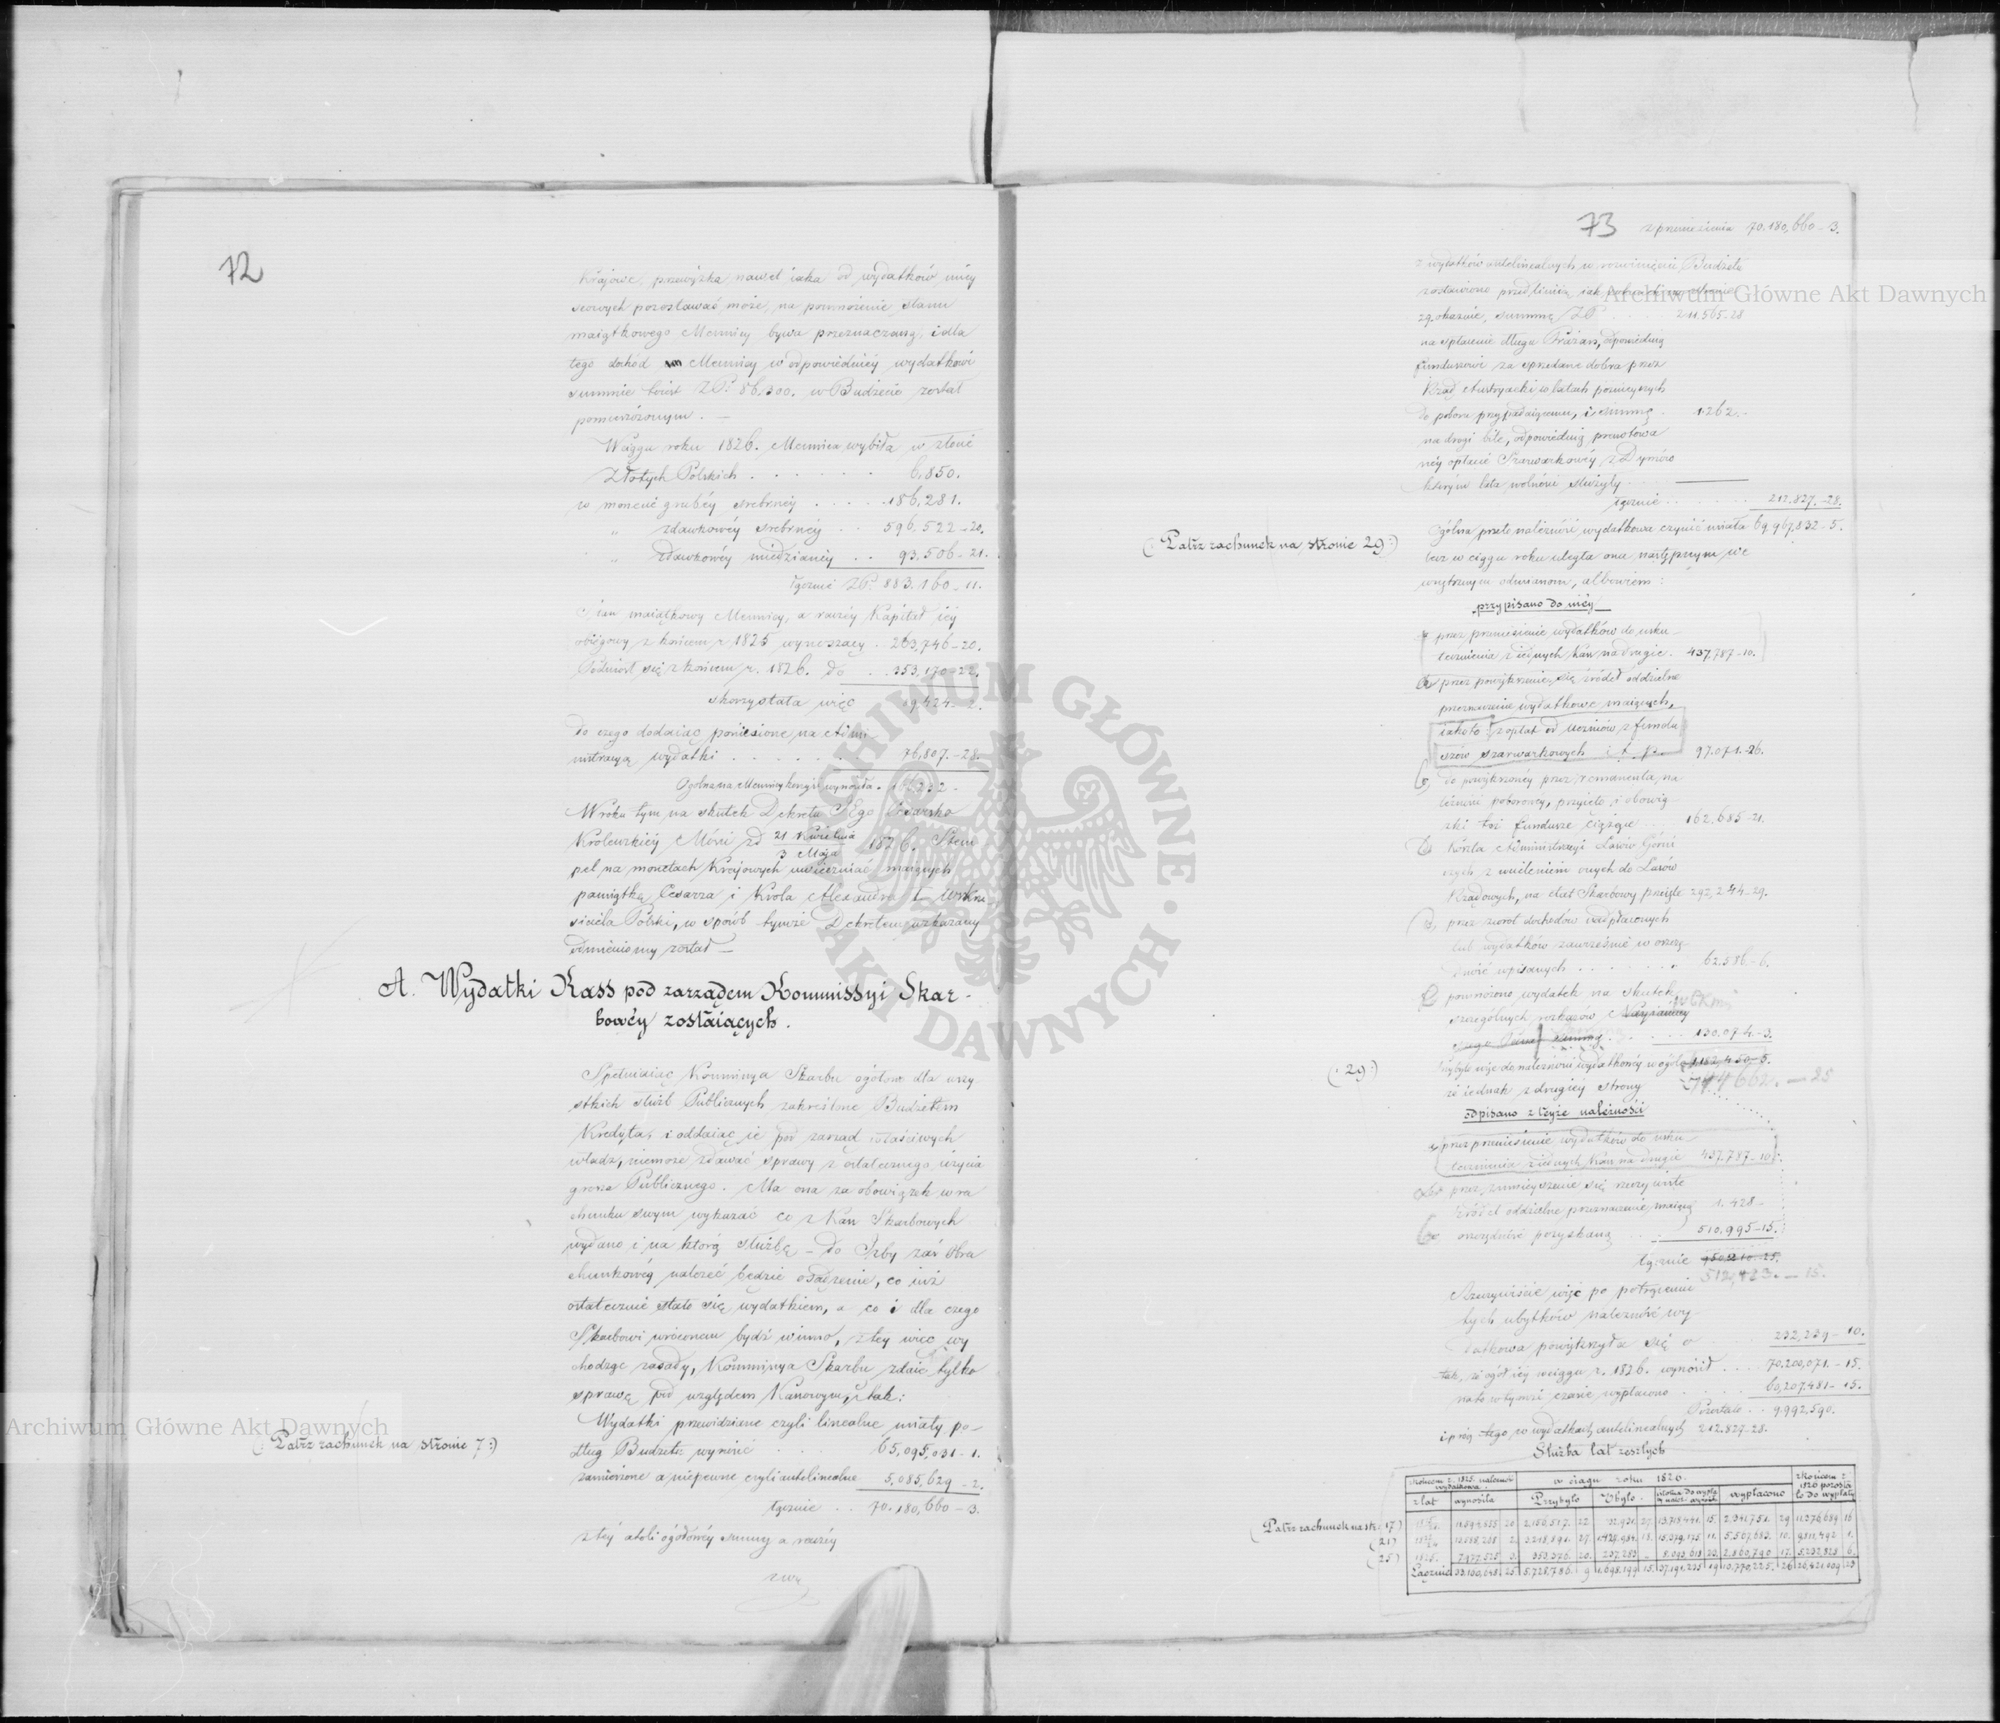 72
Krajowe, przewyżka nawet iaka od wydatków miey
scowych pozostawać może, na pomnożenie stanu
maiątkowego Mennicy bywa przeznaczaną, i dla
tego dochód Mennicy w odpowiedniéy wydatkowi
summie to iest ZP. 86,300. w Budżecie został
pomieszczonym. —
W ciągu roku 1826. Mennica wybiła w złocie
Złotych Polskich . . . . . 6,850.
w monecie grubéy srebrnéy . . . 186,281.
„ zdawkowéy srebrnéy . . 596,522 - 20.
„ zdawkowéy miedzianéy . . 93,506 - 21.
łącznie ZP. 883,160 - 11.
Stan maiątkowy Mennicy, a raczéy Kapitał iéy
obiegowy z końcem r 1825 wynoszący . 263,746 - 20.
Podniósł się z końcem r. 1826. do . . 353,170 - 22.
skorzystała więc 89,424 - 2.
do czego dodaiąc poniesione na Admi-
nistracyą wydatki . . . . . . 76,807. - 28.
Ogólna na Mennicy korzyść wynosiła .
W roku tym na skutek Dekretu JEgo Cesarsko
Królewskiéy Mości zd 21 Kwietnia / 3 Maja 1826. Stem
pel na monetach Krajowych uwieczniać maiących
pamiątkę Cesarza i Króla Alexandra I. Wskrze
siciela Polski, w sposób tymże Dekretem wskazany
odmieniony został —
A. Wydatki Kass pod zarządem Kommissyi Skar-
bowéy zostaiących.
Spełniaiąc Kommissya Skarbu ogółowe dla wszy
stkich służb Publicznych zakreślone Budżetem
Kredyta, i oddaiąc ie pod zarząd właściwych
władz, niemoże zdawać sprawy z ostatecznego użycia
grosza Publicznego. Ma ona za obowiązek w ra
chunku swym wykazać co z Kass Skarbowych
wydano i na którą służbę — do Izby zaś Obra
chunkowéy należeć będzie osądzenie, co iuż
ostatecznie stało się wydatkiem, a co i dla czego
Skarbowi wróconem bydź winno, z téy więc wy
chodząc zasady, Kommissya Skarbu zdaie tylko
sprawę pod względem Kassowym, i tak:
Wydatki przewidziane czyli linealne miały po-
dług Budżetu wynosić . . . 65,095,031 - 1.
(Patrz rachunek na stronie 7:)
zamierzone a niepewne czyli antelinealne 5,085,629 - 2.
łącznie . . 70,180,660 - 3.
z téy atoli ogółowéy summy a raczéy
73
z przeniesienia 70,180,660 - 3.
z wydatków antelinealnych w rozwinięciu Budżetu
zostawiono przed linią iak rachunek na stronie
29. okazuie, summę ZP. . . . 211.565 - 28
na spłacenie długu odpowiednią
funduszowi za sprzedane dobra przez
Rząd Austryacki w latach poźnieyszych
do poboru przypadaiącemu, i summę . 1.262. -
na drogi bite, odpowiednią
néy opłacie Szarwarkowéy z Dymów
którym lata wolności służyły . . .
łącznie . . . . 212.827. - 28.
Ogólna przeto należność wydatkowa czynić miała 69,967,832 - 5.
(Patrz rachunek na stronie 29:)
lecz w ciągu roku uległa ona następnym we
wnętrznym odmianom, albowiem:
przypisano do niéy
przez przeniesienie wydatków do usku-
tecznienia z iednych Kass na drugie . 437.787 - 10.
przez powiększenie się źródeł oddzielne
przeznaczenie wydatkowe maiących,
iako to: z opłat od uczniów z fundu
szów szarwarkowych i t. p. 97.071. - 26.
do powiększonéy przez remanenta, na
leżności poborowéy, przyięto i obowią
zki też fundusze ciążące . . 162.685 - 21.
Koszta Administracyi Lasów Górni
czych z wcieleniem onych do Lasów
Rządowych, na etat Skarbowy przeięte 292,244 - 29.
przez zwrot dochodów nadpłaconych
lub wydatków zawcześnie w oszczę
dność wpisanych . . . . . . 62.586 - 6.
powiększono wydatek na skutek
szczególnych rozkazów
. . . 130.074 - 3.
Przybyło więc do należności wydatkowéy w ogóle 1182,450 - 5.
744662. — 25
(: 29 :)
że iednak z drugiéy strony
odpisano z téyże należności
przez przeniesienie wydatków do usku-
tecznienia z iednych Kass na drugie 437.787 - 10.
przez zmnieyszenie się rzeczywiste
źródeł oddzielne przeznaczenie maiącą 1.428 -
oszczędność pozyskaną . . . 510.995 - 15.
łącznie 950.210 - 25.
512,423. — 15.
Rzeczywiście więc po potrąceniu
tych ubytków należność wy-
datkowa powiększyła się o 232,239 - 10.
tak, że ogół iéy w ciągu r. 1826. wynosił . . . 70,200,071. - 15.
na to w tymże czasie wypłacono . . . 60,207,481 - 15.
Pozostało . . 9,992,590.
i prócz tego w wydatkach antelinealnych 212.827 - 28.
Służba lat zeszłych
z końcem r. 1825. należność wydatkowa. | w ciągu roku 1826. | z końcem r. 1826 pozosta ło do wypłaty
z lat | wynosiła | Przybyło | Ubyło. | wypłacono
(Patrz rachunek na str: 17)
(21)
(25)
1825.
Łącznie
Archiwum Główne Akt Dawnych
Archiwum Główne Akt Dawnych
ARCHIWUM GŁÓWNE · AKT DAWNYCH ·